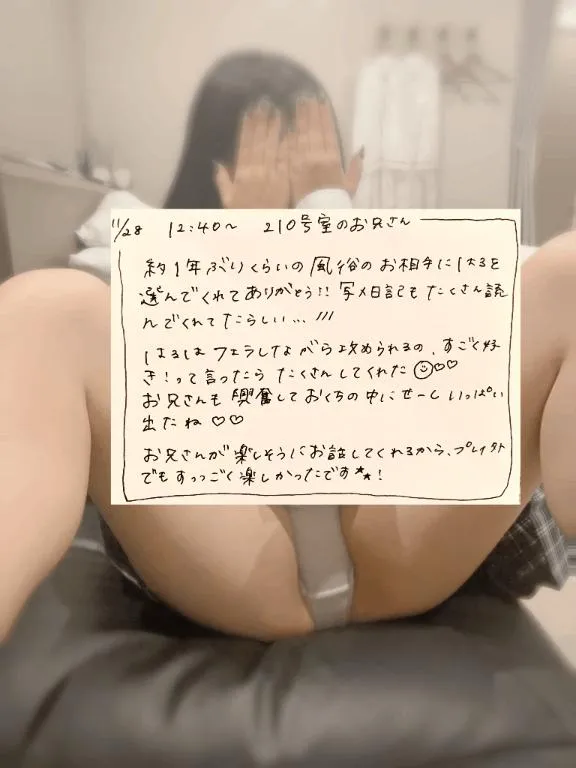 11/28 12:40〜 210号室のお兄さん
約1年ぶりくらいの風俗のお相手にはるを
選んでくれてありがとう!! 写メ日記もたくさん読
んでくれてたらしい... ///
はるはフェラしながら攻められるの、すごく好
き!って言ったらたくさんしてくれた☺♡♡
お兄さんも興奮しておくちの中にせーしいっぱい
出たね♡♡
お兄さんが楽しそうにお話してくれるから、プレイ外
でもすっっごく楽しかったです**!